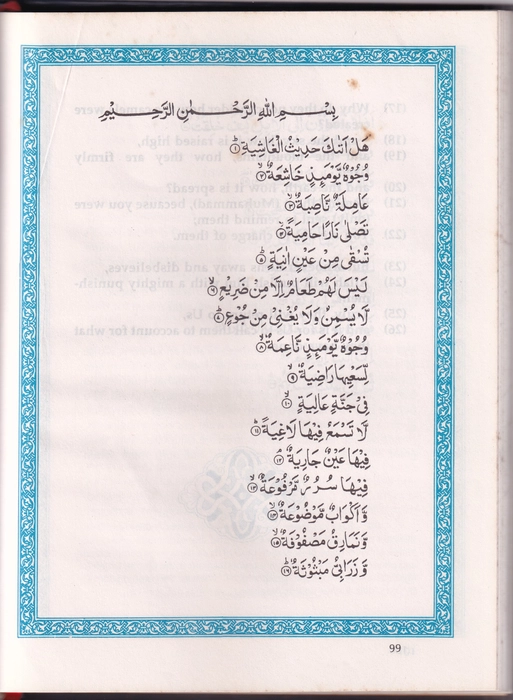 بِسْمِ اللهِ الرَّحْمٰنِ الرَّحِيْمِ
هَلْ اَتٰىكَ حَدِيْثُ الْغَاشِيَةِ ۝١
وُجُوْهٌ يَّوْمَىِٕذٍ خَاشِعَةٌ ۝٢
عَامِلَةٌ نَّاصِبَةٌ ۝٣
تَصْلٰى نَارًا حَامِيَةً ۝٤
تُسْقٰى مِنْ عَيْنٍ اٰنِيَةٍ ۝٥
لَيْسَ لَهُمْ طَعَامٌ اِلَّا مِنْ ضَرِيْعٍ ۝٦
لَّا يُسْمِنُ وَلَا يُغْنِيْ مِنْ جُوْعٍ ۝٧
وُجُوْهٌ يَّوْمَىِٕذٍ نَّاعِمَةٌ ۝٨
لِّسَعْيِهَا رَاضِيَةٌ ۝٩
فِيْ جَنَّةٍ عَالِيَةٍ ۝١٠
لَّا تَسْمَعُ فِيْهَا لَاغِيَةً ۝١١
فِيْهَا عَيْنٌ جَارِيَةٌ ۝١٢
فِيْهَا سُرُرٌ مَّرْفُوْعَةٌ ۝١٣
وَّاَكْوَابٌ مَّوْضُوْعَةٌ ۝١٤
وَّنَمَارِقُ مَصْفُوْفَةٌ ۝١٥
وَّزَرَابِيُّ مَبْثُوْثَةٌ ۝١٦
99